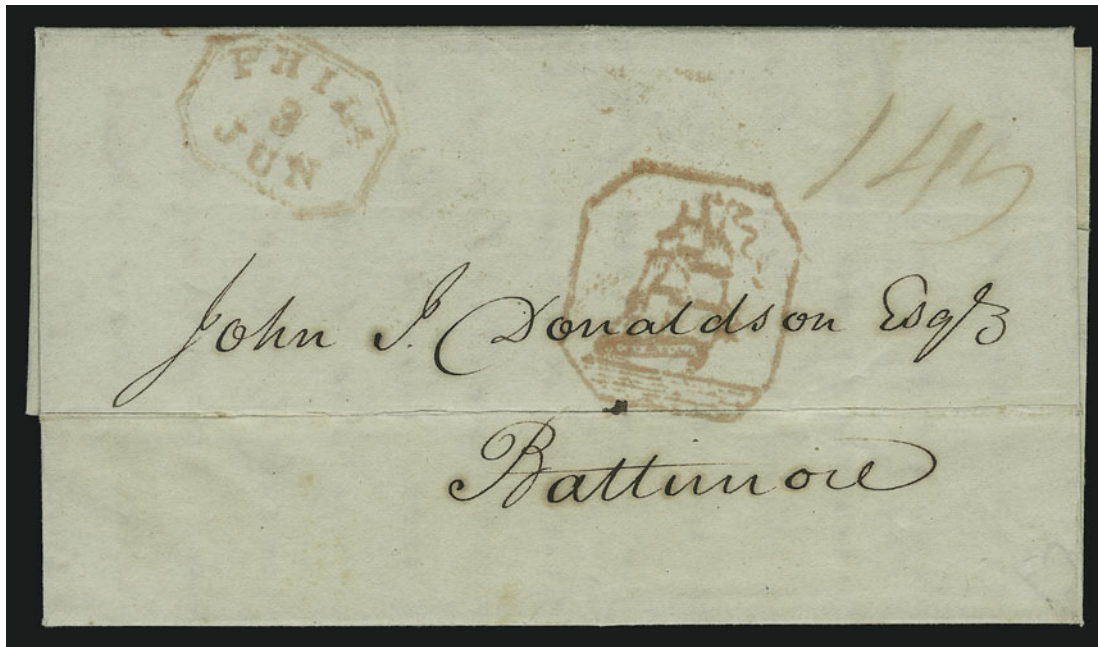 PHILA
3
JUN
John J. Donaldson Esqr
Baltimore